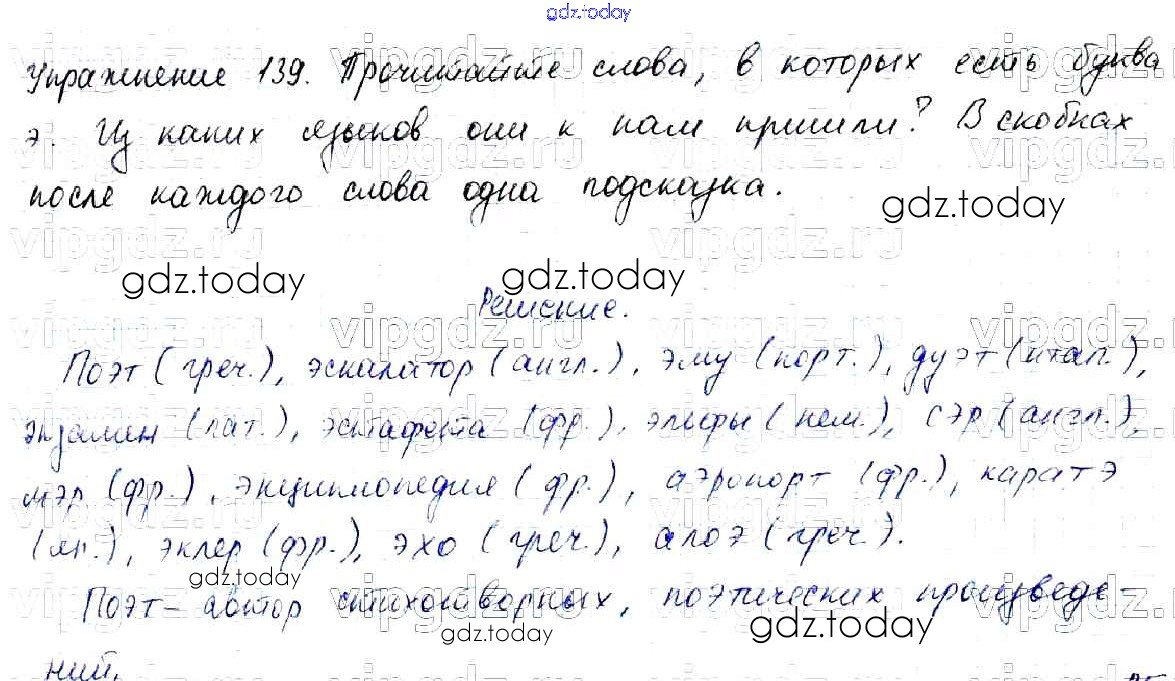 gdz.today
Упражнение 139. Прочитайте слова, в которых есть буква
э. Из каких языков они к нам пришли? В скобках
после каждого слова одна подсказка.
gdz.today
gdz.today
gdz.today
Решение.
Поэт (греч.), эскалатор (англ.), эму (порт.), дуэт (итал.),
экзамен (лат.), эстафета (фр.), эльфы (нем.), сэр (англ.),
мэр (фр.), энциклопедия (фр.), аэропорт (фр.), каратэ
(яп.), эклер (фр.), эхо (греч.), алоэ (греч.).
gdz.today
Поэт – автор стихотворных, поэтических произведе-
gdz.today
gdz.today
ний.